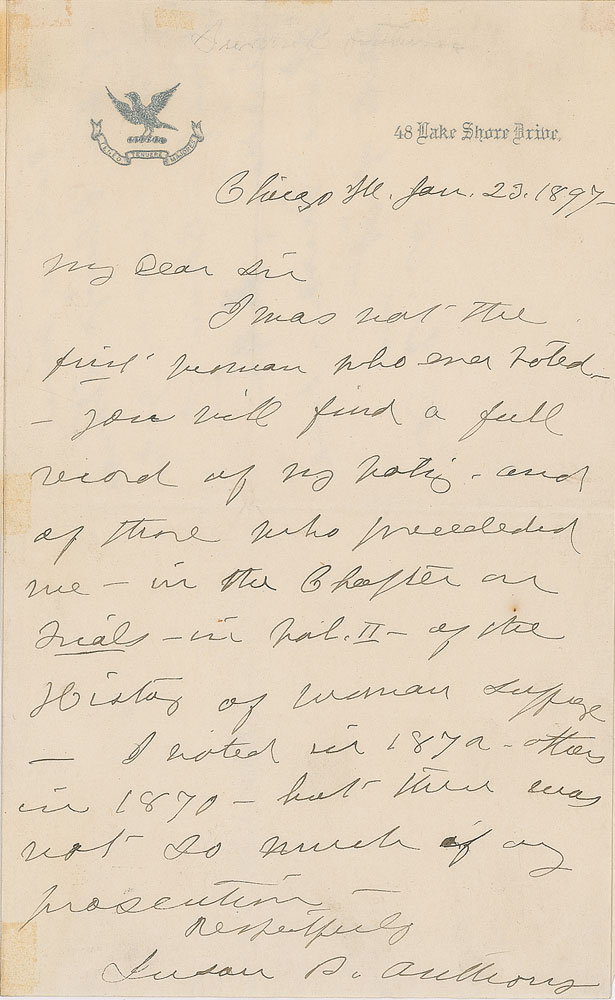 LYEO TENUERE MAJORES
48 Lake Shore Drive.
Chicago Ill. Jan. 23. 1897–
My Dear Sir
I was not the
first woman who ever voted –
– You will find a full
record of my voting – and
of those who preceeded
me – in the Chapter on
Trials – in Vol. II – of the
History of Woman Suffrage
– I voted in 1872 – others
in 1870 – but there was
not so much of any
prosecution –
Respectfully
Susan B. Anthony